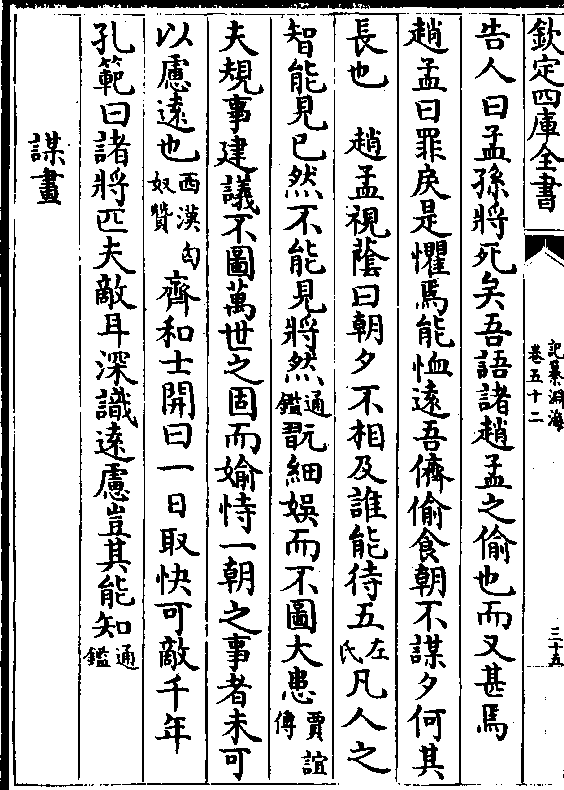 欽定四庫全書
記纂淵海
卷五十二
三十五
告人曰孟孫將死矣吾語諸趙孟之偷也而又甚焉
趙孟曰罪戾是懼焉能恤遠吾儕偷食朝不謀夕何其
長也　趙孟視蔭曰朝夕不相及誰能待五左氏凡人之
智能見已然不能見將然通鑑翫細娛而不圖大患賈誼傳
夫規事建議不圖萬世之固而媮恃一朝之事者未可
以慮遠也西漢匈奴贊齊和士開曰一日取快可敵千年
孔範曰諸將匹夫敵耳深識遠慮豈其能知通鑑
謀畫